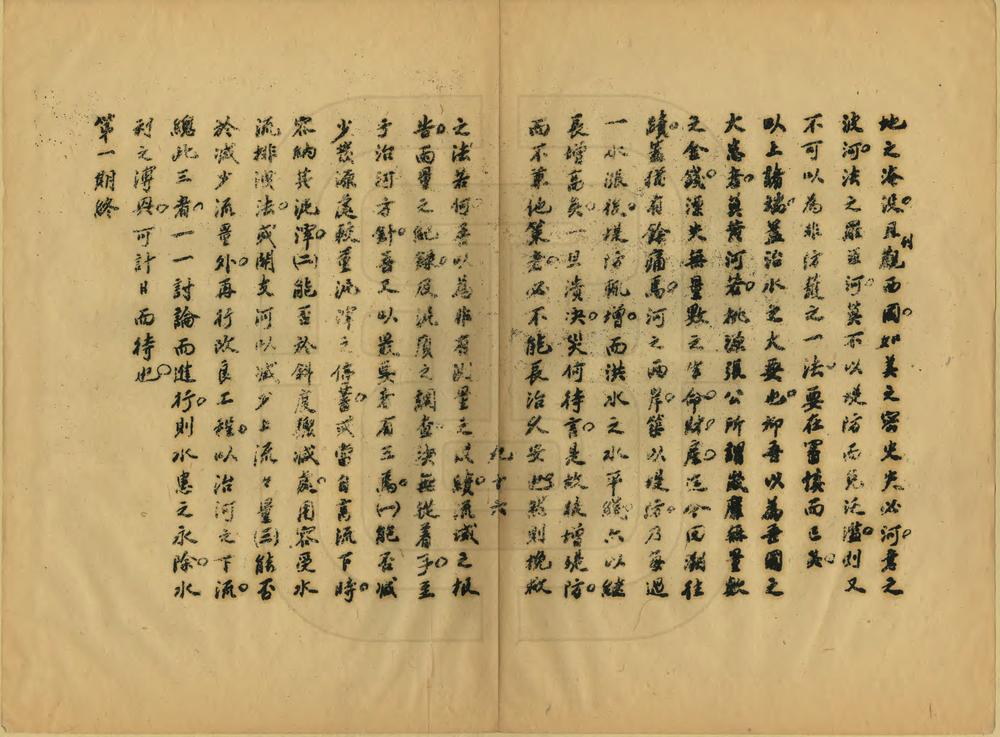 地之淹沒。且觀西國。如美之密失失必河。意之
波河。法之羅亞河。莫不以堤防而免泛濫。則又
不可以為非防護之一法。要在審慎而已矣。
以上諸端。蓋治水之大要也。抑吾以為吾國之
大患者。莫黃河若。桃源張公所謂歲靡無量數
之金錢。漂失無量數之生命財產。迄今回溯往
蹟。蓋猶有餘痛焉。河之兩岸。築以堤防。乃每過
一水漲後。堤防輒增。而洪水之水平綫。亦以繼
長增高矣。一旦潰決。災何待言。是故積增堤防。
而不兼他策者。必不能長治久安也。然則挽救
之法若何。吾以為非有測量之成績。流域之報
告。而量之紀錄。及流質之調查。決無從着手。至
于治河方針。吾又以最要者有三焉。(一)能否減
少發源處較重泥滓之停蓄。或當自高流下時。
容納其泥滓。(二)能否於斜度驟減處。用容受水
流排洩法。或開支河。以減少上流之量。(三)能否
於減少流量外。再行改良工程。以治河之下流。
總此三者。一一討論而進行。則水患之永除。水
利之溥興。可計日而待也。
第一期終
九十六